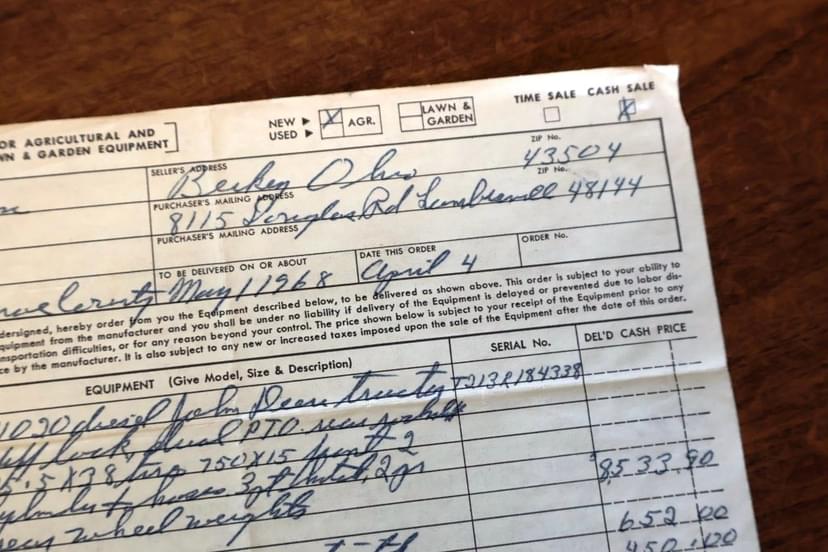 OR AGRICULTURAL AND
WN & GARDEN EQUIPMENT
NEW ▶ X AGR. LAWN &
USED ▶ GARDEN
TIME SALE CASH SALE
X
SELLER'S ADDRESS ZIP No.
Berkey Ohio 43504
PURCHASER'S MAILING ADDRESS ZIP No.
8115 Douglas Rd 48144
PURCHASER'S MAILING ADDRESS
TO BE DELIVERED ON OR ABOUT DATE THIS ORDER ORDER No.
May 1 1968 April 4
dersigned, hereby order from you the Equipment described below, to be delivered as shown above. This order is subject to your ability to
quipment from the manufacturer and you shall be under no liability if delivery of the Equipment is delayed or prevented due to labor dis-
nsportation difficulties, or for any reason beyond your control. The price shown below is subject to your receipt of the Equipment prior to any
ce by the manufacturer. It is also subject to any new or increased taxes imposed upon the sale of the Equipment after the date of this order.
EQUIPMENT (Give Model, Size & Description) SERIAL No. DEL'D CASH PRICE
1020 diesel John Deere T213R184338
iff lock, dual PTO rear
5.5 X 38 750X15 front 2
hoses 3 pt hitch, 2 8533.90
wheel weights
652 00
450 00